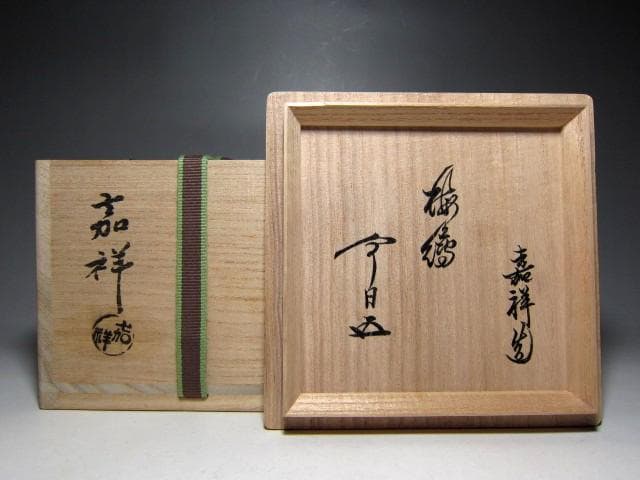 嘉祥造
梅
今日庵
嘉祥